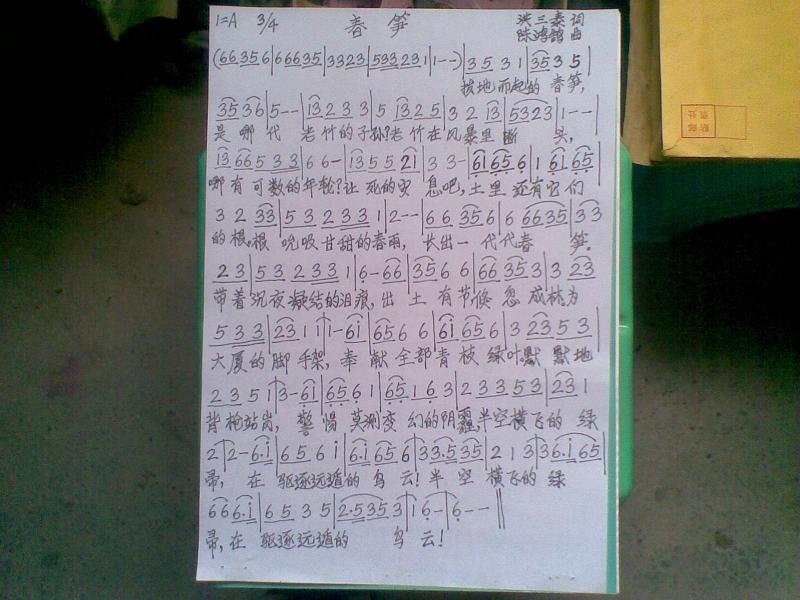 1=A 3/4 春笋 洪三泰 词
陈鸿鹄 曲
(66356|666635|3323|533231|1--)|3531|3535|
拔地而起的 春笋,
3536|5--|13233|51325|3213|5323|1--|
是哪代 老竹的子孙?老竹在风暴里断 头,
1366533|66-|135521|33-|61656|16165|
哪有可数的年轮?让死的安息吧,土里还有它们
3233|532331|2--|66356|66635|33
的根。根吮吸甘甜的春雨,长出一代代春 笋。
23|532331|6-66|3566|66353|323
带着沉夜凝结的泪痕,出土有节,倏忽成林为
533|2311|1-61|6566|61656|32353
大厦的脚手架,奉献全部青枝绿叶。默默地
2351|3-61|6561|65163|233353|231
背枪站岗,警惕莫测变幻的阴霾,半空横飞的绿
2|2-6.1|6561|6.1656|33.535|213|36.165
帚,在驱逐远遁的乌云!半空横飞的绿
666.1|6535|2.5353|16-|6--‖
帚,在驱逐远遁的 乌云!